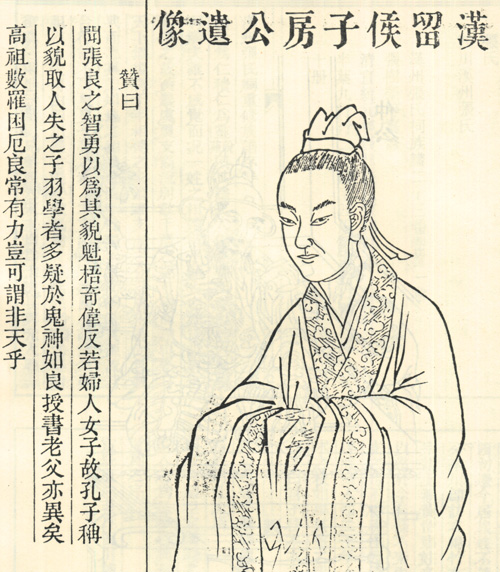 漢留侯子房公遺像
贊曰
聞張良之智勇以爲其貌魁梧奇偉反若婦人女子故孔子稱
以貌取人失之子羽學者多疑於鬼神如良授書老父亦異矣
高祖數羅困厄良常有力豈可謂非天乎